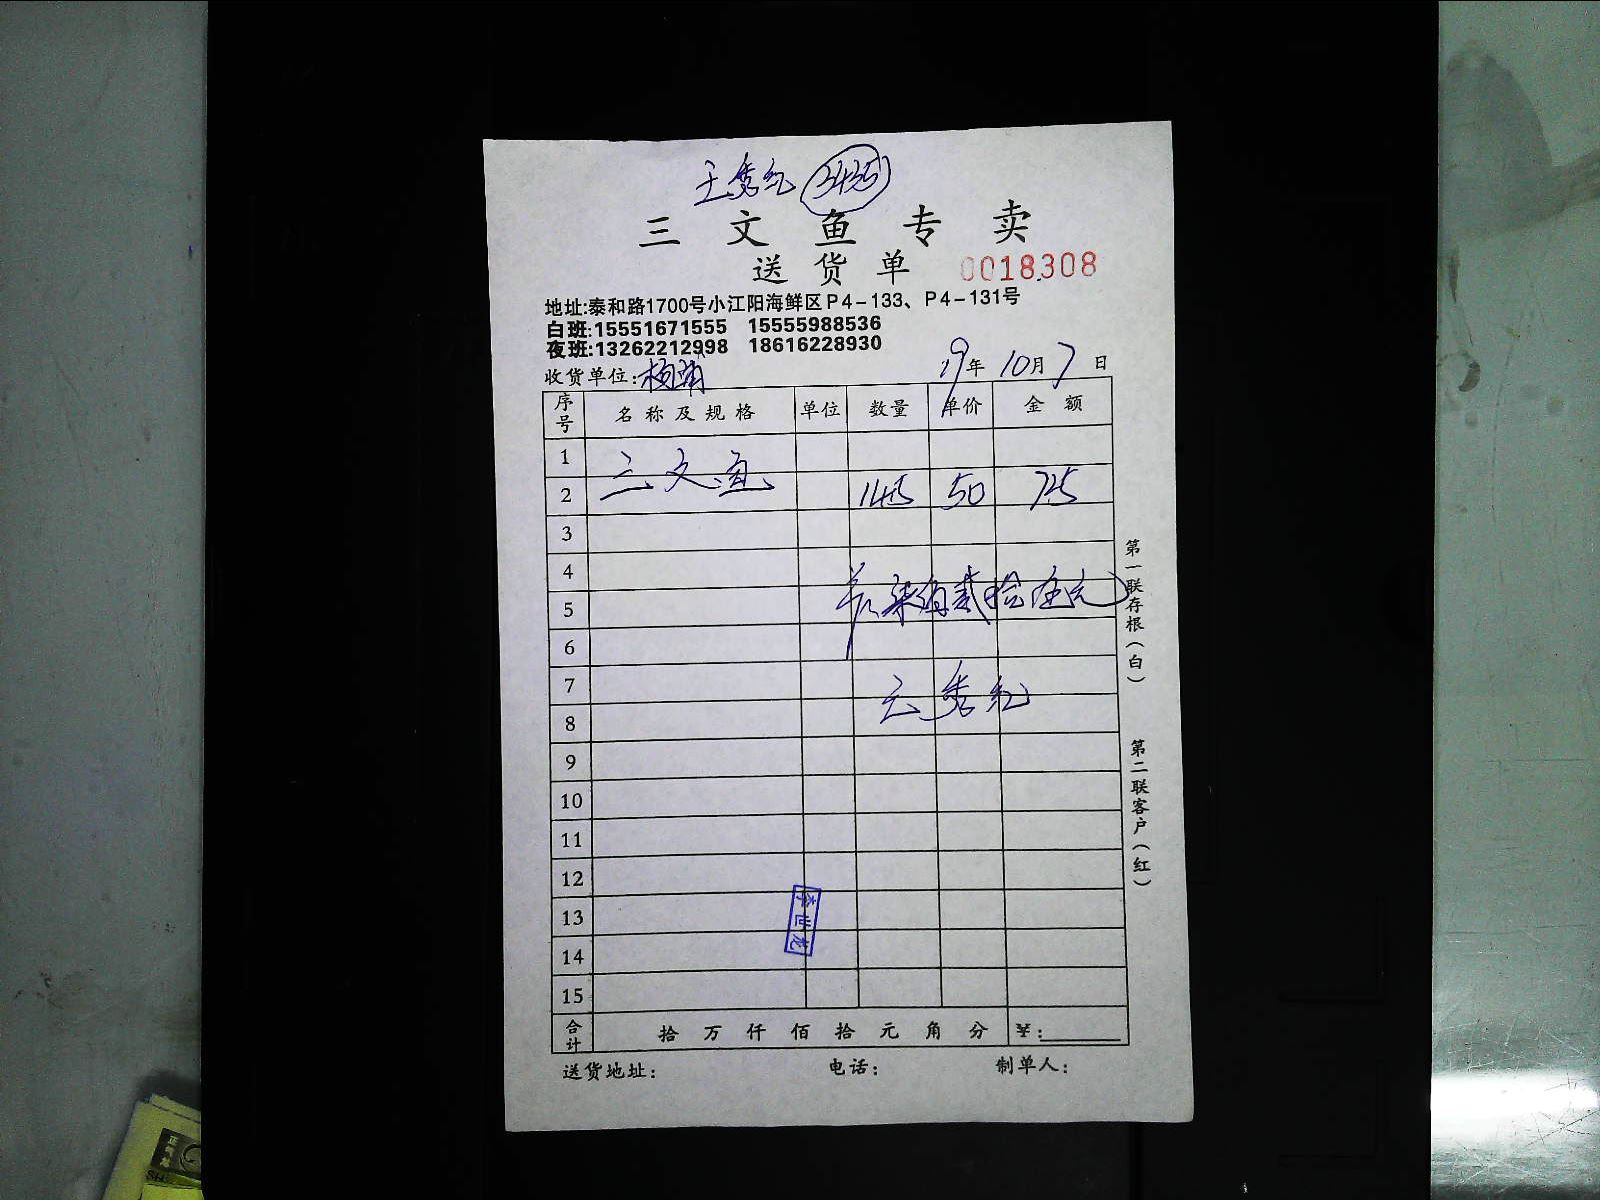 王秀红 3435
三文鱼专卖
送货单 0018308
地址:泰和路1700号小江阳海鲜区P4-133、P4-131号
白班:15551671555 15555988536
夜班:13262212998 18616228930
收货单位:杨浦 19年10月7日
序号 名称及规格 单位 数量 单价 金额
1
三文鱼
2 14.5 50 725
3
4
5 共柒佰贰拾伍元
6
7
王秀红
8
9
10
11
12
13
李世龙
14
15
合计 拾万仟佰拾元角分 ¥:
送货地址: 电话: 制单人:
第一联存根(白)
第二联客户(红)